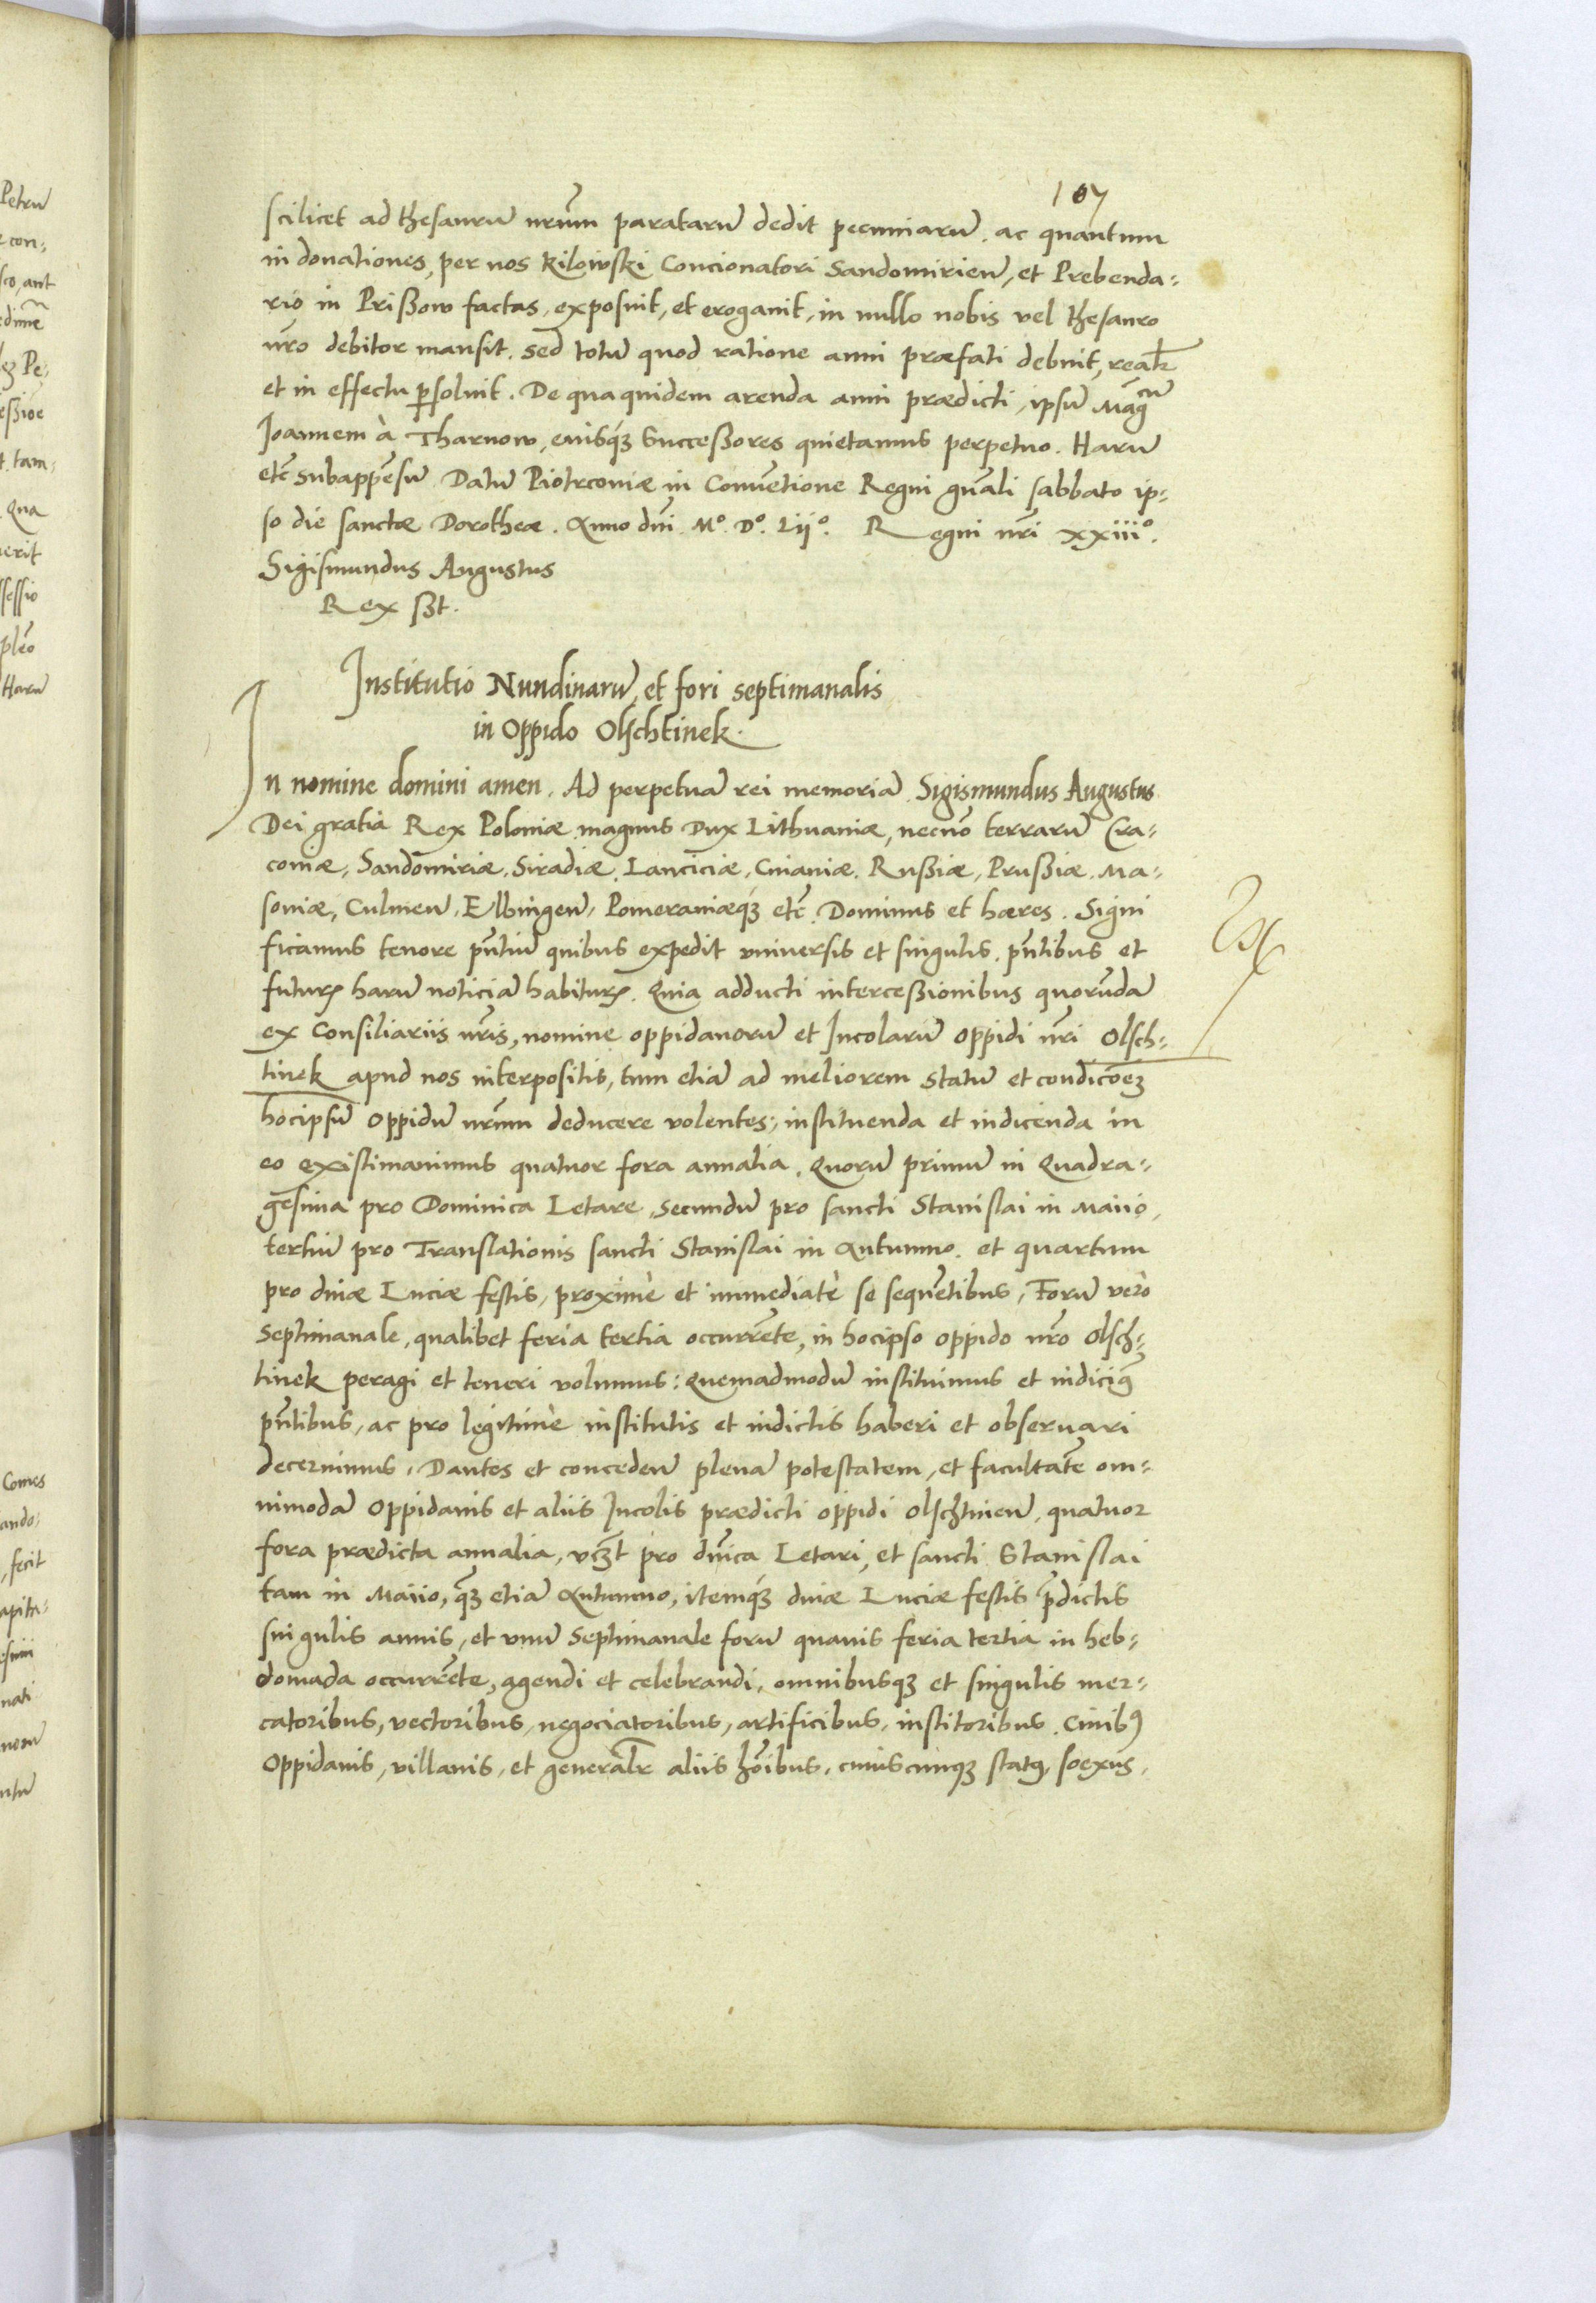 107
scilicet ad thesaurū nrūm paratarū dedit pecuniarū. ac quantum
in donationes, per nos Kilowski Concionatori Sandomirieñ, et Prebenda-
rio in Prißow factas, exposuit, et erogauit, in nullo nobis vel thesauro
nr̄o debitor mansit. sed totū quod ratione anni præfati debuit, realr̄
et in effectu ꝑsoluit. De qua quidem arenda anni prædicti, ipsū Mag̃cū
Joannem à Tharnow, eiusq́ꝫ Successores quietamus perpetuo. Harū
etc̃ subappēsū Datū Piotrconiæ in Conuētione Regni gn̄ali sabbato ip-
so die sanctæ Dorotheæ. Anno dn̄i. Mº. Dº. Lijº. Regni nr̄i xxiiiº.
Sigismundus Augustus
Rex sßt.
Institutio Nundinarū, et fori septimanalis
in Oppido Olschtinek.
In nomine domini amen. Ad perpetuā rei memoriā. Sigismundus Augustus
Dei gratia Rex Poloniæ magnus Dux Lithuaniæ, necnō terrarū Cra-
couiæ, Sandomiriæ, Siradiæ, Lanciciæ, Cuiauiæ, Rußiæ, Prußiæ, Ma-
souiæ, Culmeñ, Elbingeñ, Pomeraniæq́ꝫ etc̃. Dominus et hæres. Signi
ficamus tenore pn̄tiū quibus expedit vniuersis et singulis, pn̄tibus et
futurꝭ harū noticiā habiturꝭ. Quia adducti intercessionibus quorūdā
ex Consiliariis nr̄is, nomine oppidanorū et Incolarū oppidi nr̄i Olsch-
tinek apud nos interpositis, tum etiā ad meliorem statū et condicōeꝫ
hocipsū oppidū nrūm deducere volentes, instituenda et indicenda in
eo existimauimus quatuor fora annalia. Quorū primū in Quadra-
gesima pro Dominica Letare, secundū pro sancti Stanislai in Maiio,
tertiū pro Translationis sancti Stanislai in Autumno. et quartum
pro diuæ Luciæ festis, proximè et immediatè se sequētibus, Forū verò
Septimanale, qualibet feria tertia occurrēte, in hocipso oppido nr̄o Olsch-
tinek peragi et teneri volumus: Quemadmodū instituimus et indicimꝰ
pn̄tibus, ac pro legitimè institutis et indictis haberi et obseruari
decernimus. Dantes et concedeñ plenā potestatem, et facultatē om-
nimodā oppidanis et aliis Incolis prædicti oppidi Olschtinieñ, quatuor
fora prædicta annalia, vcꝫt pro dn̄ica Letari, et sancti Stanislai
tam in Maiio, q̃ꝫ etiā Autumno, itemq́ꝫ diuæ Luciæ festis p̄dictis
singulis annis, et vnū Septimanale forū quauis feria tertia in heb-
domada occurrēte, agendi et celebrandi, omnibusqꝫ et singulis mer-
catoribus, vectoribus, negociatoribus, artificibus, institoribus, Ciuibꝰ
Oppidanis, villanis, et generalr̄ aliis hōibus, cuiuscunqꝫ statꝰ, soexus,